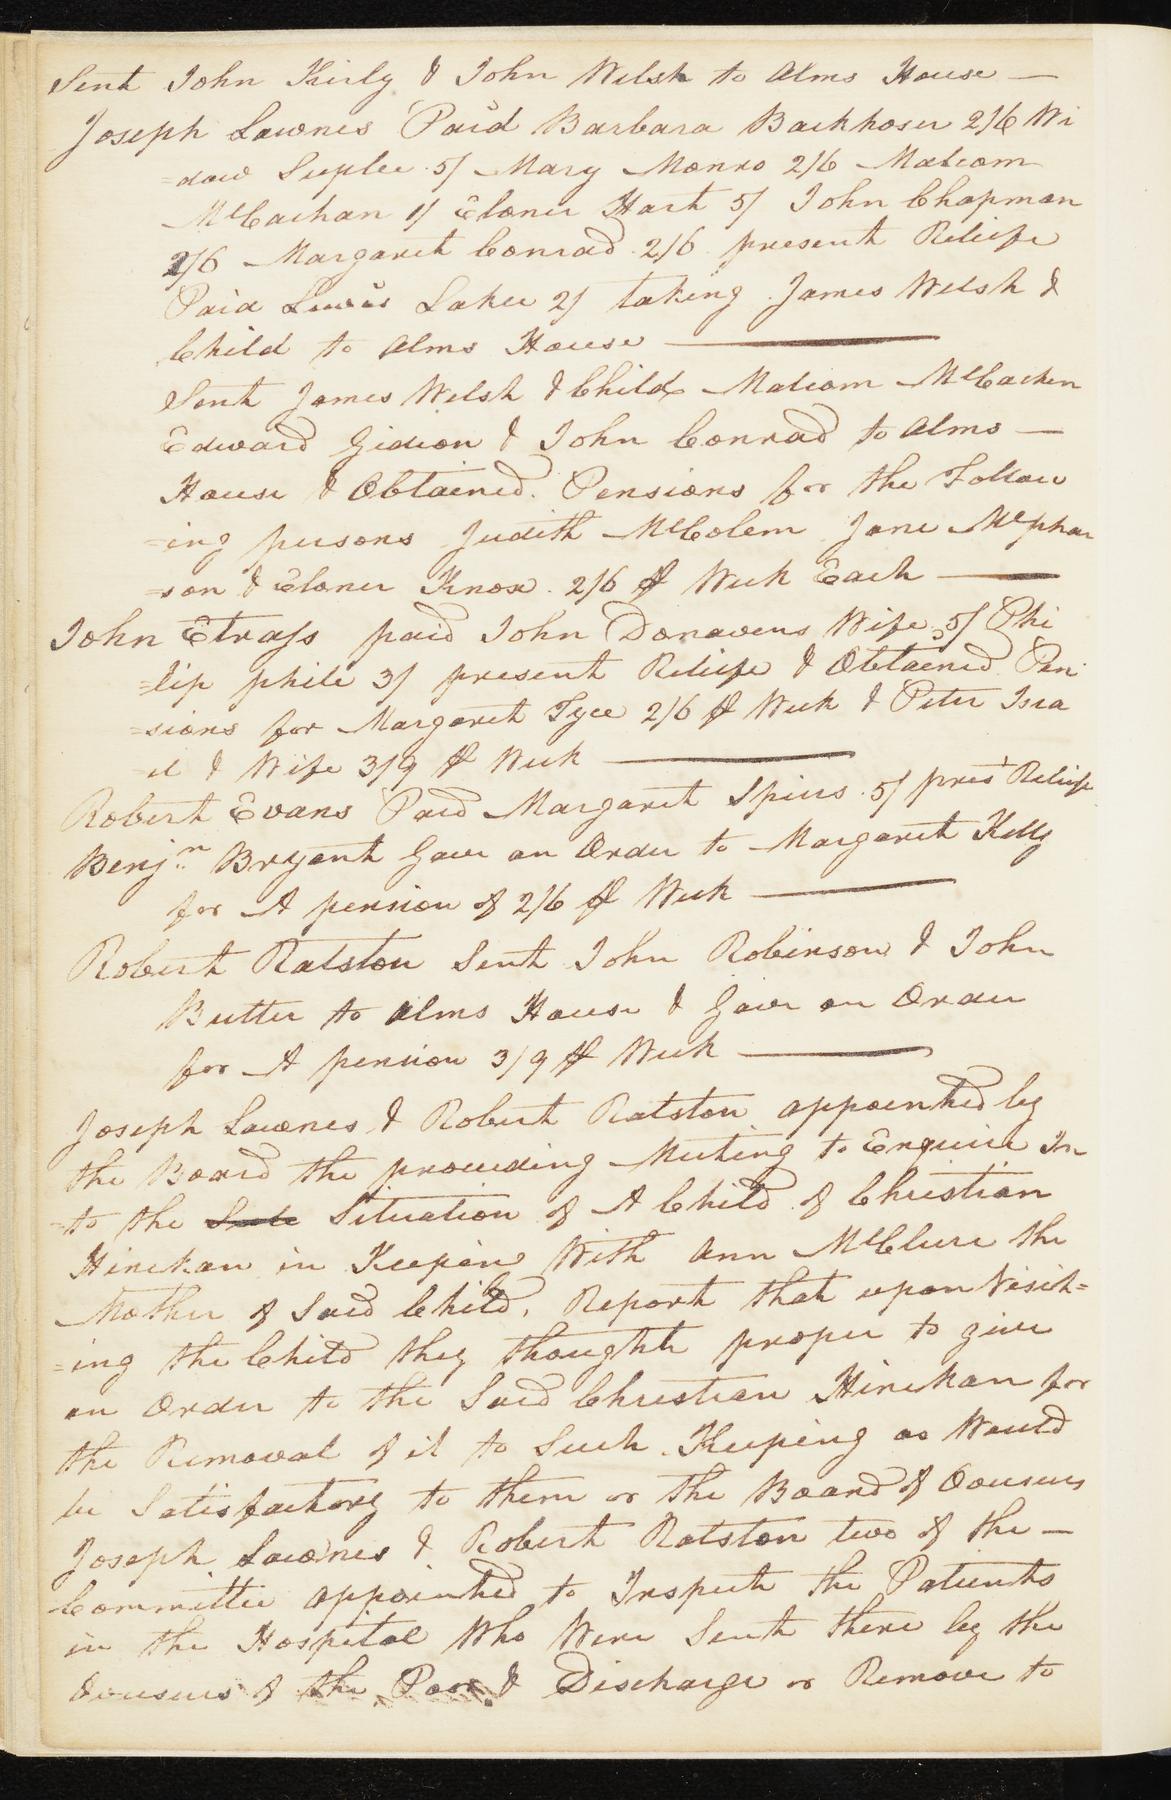 Sent John Kirly & John Welsh to Alms House —
Joseph Lawnes Paid Barbara Backhoser 2/6 Wi
=dow Suplee 5/ Mary Monro 2/6 Malcom
McCachan 1/ Eloner Hart 5/ John Chapman
2/6 Margaret Conrad 2/6 present Reliefe
Paid Lewis Laker 2/ taking James Welsh &
Child to Alms House —
Sent James Welsh & Child Malcom McCachen
Edward Gidion & John Conrad to Alms —
House & Obtained Pensions for the Follow
=ing persons Judith McColem Jane Mcphar
=son & Eloner Knox 2/6 ⅌ Week Each —
John Etrass paid John Donavens Wife 5/ Phi
=lip phile 3/ present Reliefe & Obtained Pen
=sions for Margaret Tyce 2/6 ⅌ Week & Peter Isra
=el & Wife 3/9 ⅌ Week —
Robert Evans Paid Margaret Spiers 5/ prest Reliefe
Benjn Bryant Gave an Order to Margaret Kelly
for A pension of 2/6 ⅌ Week —
Robert Ralston Sent John Robinson & John
Butter to Alms House & Gave an Order
for A pension 3/9 ⅌ Week —
Joseph Lawnes & Robert Ralston appointed by
the Board the preceeding Meeting to Enquire In
=to the Situation of A Child of Christian
Hinekan in Keeping With Ann McClure the
Mother of Said Child, Report that upon Visit=
=ing the Child they thought proper to give
an Order to the Said Christian Hinekan for
the Removal of it to Such Keeping as Would
be Satisfactory to them or the Board of Oouseers
Joseph Lawnes & Robert Ralston two of the —
Committee appointed to Inspect the Patients
in the Hospital Who Were Sent there by the
Oouseers of the Poor & Discharge or Remove to